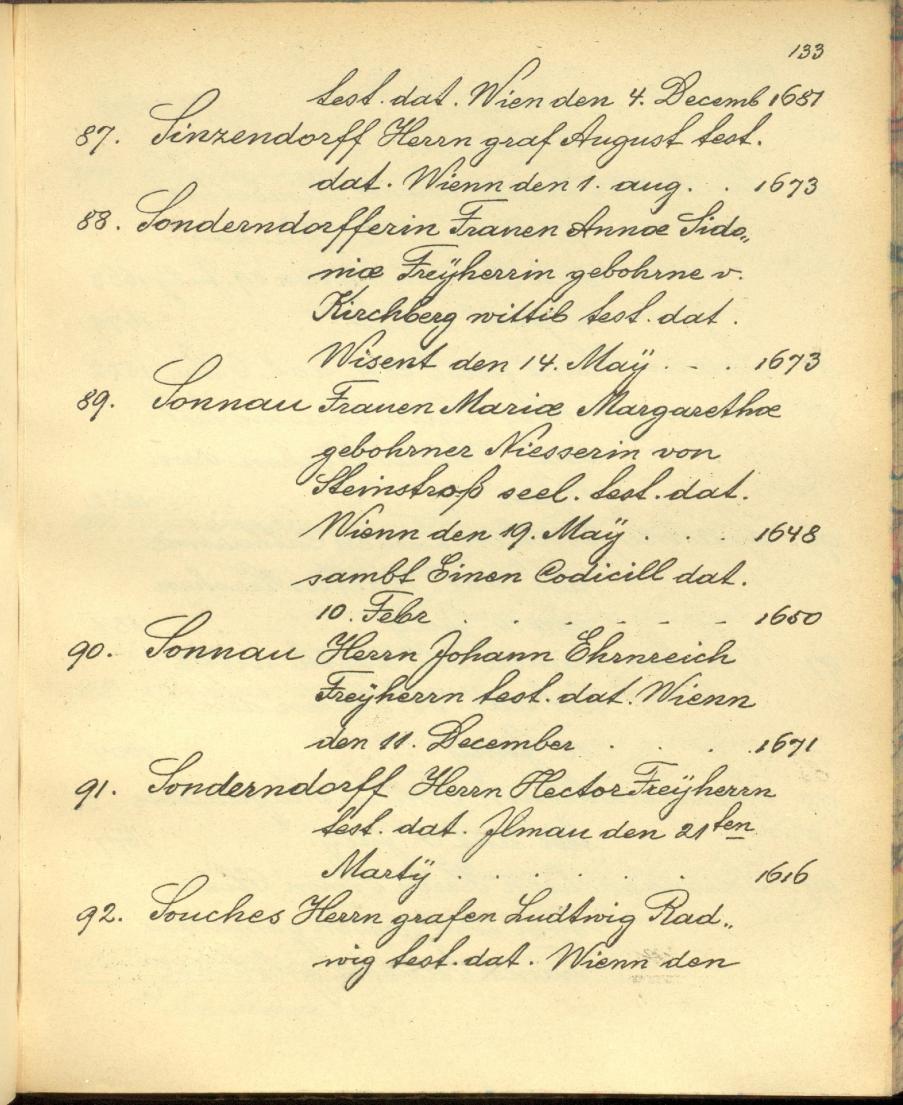 133
test. dat. Wien den 4. Decemb 1681
87. Sinzendorff Herrn graf August test.
dat. Wienn den 1. aug. . . 1673
88. Sonderndorfferin Frauen Annæ Sido„
niæ Freÿherrin gebohrne v.
Kirchberg wittib test. dat.
Wisent den 14. Maÿ . - . 1673
89. Sonnau Frauen Mariæ Margarethæ
gebohrner Niesserin von
Steinstroß seel. test. dat.
Wienn den 19. Maÿ . . . 1648
sambt Einen Codicill dat.
10. Febr . . - - - - 1650
90. Sonnau Herrn Johann Ehrnreich
Freÿherrn test. dat. Wienn
den 11. December . . . . 1671
91. Sonderndorff Herrn Hector Freÿherrn
test. dat. Ilmau den 21ten
Martÿ . . . . . . 1616
92. Souches Herrn grafen Ludtwig Rad„
wig test. dat. Wienn den